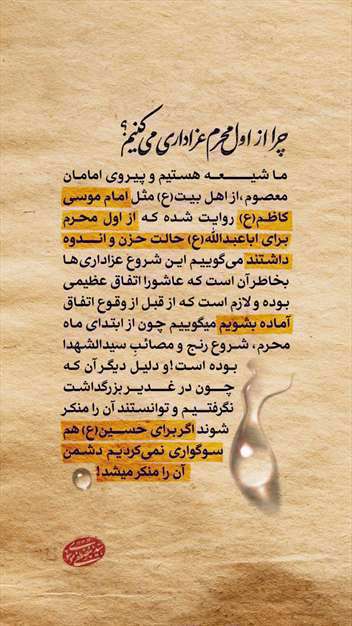 چرا از اول محرم عزاداری می‌کنیم؟
ما شیعه هستیم و پیروی امامان
معصوم،از اهل بیت(ع) مثل امام موسی
کاظم(ع) روایت شده که از اول محرم
برای اباعبدالله(ع) حالت حزن و اندوه
داشتند می‌گوییم این شروع عزاداری‌ها
بخاطر آن است که عاشورا اتفاق عظیمی
بوده و لازم است که از قبل از وقوع اتفاق
آماده بشویم میگوییم چون از ابتدای ماه
محرم، شروع رنج و مصائبِ سیدالشهدا
بوده است!و دلیل دیگر آن که
چون در غدیر بزرگداشت
نگرفتیم و توانستند آن را منکر
شوند اگر برای حسین(ع) هم
سوگواری نمی‌کردیم دشمن
آن را منکر میشد!